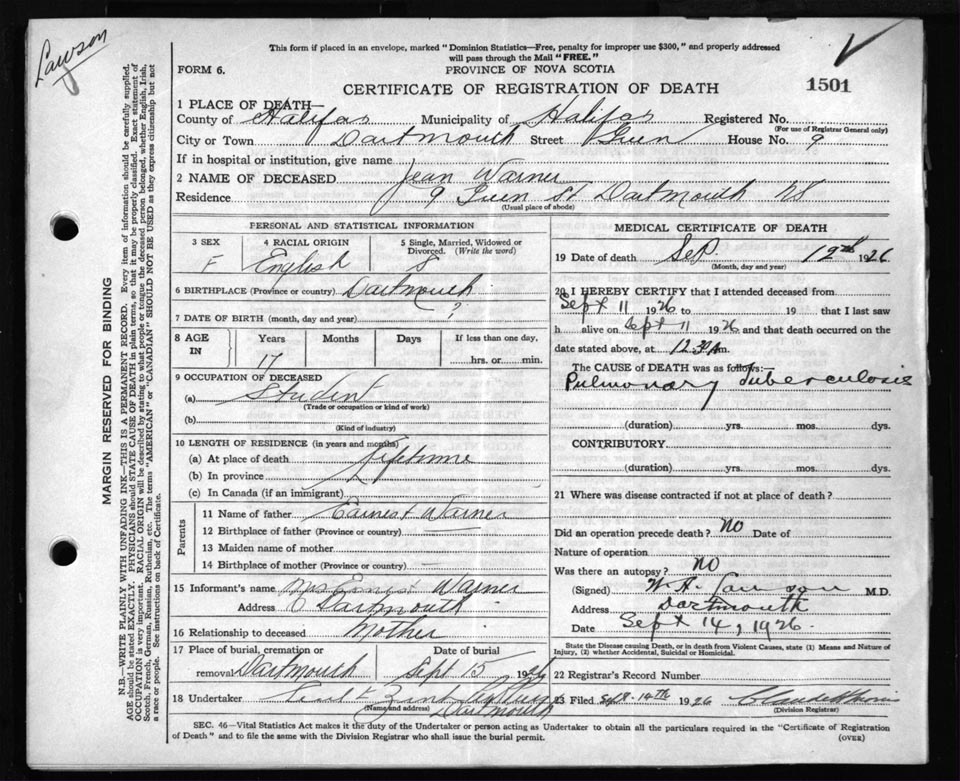 Lawson
This form if placed in an envelope, marked "Dominion Statistics—Free, penalty for improper use $300," and properly addressed
will pass through the Mail "FREE."
FORM 6.
PROVINCE OF NOVA SCOTIA
CERTIFICATE OF REGISTRATION OF DEATH
1501
1 PLACE OF DEATH—
County of Halifax Municipality of Halifax Registered No.
(For use of Registrar General only)
City or Town Dartmouth Street House No. 9
If in hospital or institution, give name
2 NAME OF DECEASED Jean Warner
Residence 9 St Dartmouth NS
(Usual place of abode)
PERSONAL AND STATISTICAL INFORMATION
3 SEX 4 RACIAL ORIGIN 5 Single, Married, Widowed or
Divorced. (Write the word)
F English S
6 BIRTHPLACE (Province or country) Dartmouth
7 DATE OF BIRTH (month, day and year) ?
8 AGE IN Years Months Days If less than one day,
17 hrs. or min.
9 OCCUPATION OF DECEASED
(a) Student
(Trade or occupation or kind of work)
(b)
(Kind of industry)
10 LENGTH OF RESIDENCE (in years and months)
(a) At place of death Lifetime
(b) In province
(c) In Canada (if an immigrant)
Parents
11 Name of father Earnest Warner
12 Birthplace of father (Province or country)
13 Maiden name of mother
14 Birthplace of mother (Province or country)
15 Informant's name Mrs Ernest Warner
Address Dartmouth
16 Relationship to deceased Mother
17 Place of burial, cremation or Date of burial
removal Dartmouth Sept 15 1926
18 Undertaker
(Name and address) Dartmouth
MEDICAL CERTIFICATE OF DEATH
19 Date of death Sep. 12th 1926
(Month, day and year)
20 I HEREBY CERTIFY that I attended deceased from
Sept 11 1926 to 19 that I last saw
h alive on Sept 11 1926 and that death occurred on the
date stated above, at 12.30 A m.
The CAUSE OF DEATH was as follows:
Pulmonary Tuberculosis
(duration) yrs. mos. dys.
CONTRIBUTORY
(duration) yrs. mos. dys.
21 Where was disease contracted if not at place of death?
Did an operation precede death? No Date of
Nature of operation
Was there an autopsy? NO
(Signed) Lawson M.D.
Address Dartmouth
Date Sept 14, 1926.
State the Disease causing Death, or in death from Violent Causes, state (1) Means and Nature of
Injury, (2) whether Accidental, Suicidal or Homicidal.
22 Registrar's Record Number
23 Filed Sept. 14th 1926
(Division Registrar)
SEC. 46—Vital Statistics Act makes it the duty of the Undertaker or person acting as Undertaker to obtain all the particulars required in the "Certificate of Registration
of Death" and to file the same with the Division Registrar who shall issue the burial permit.
(OVER)
MARGIN RESERVED FOR BINDING
N.B.—WRITE PLAINLY WITH UNFADING INK—THIS IS A PERMANENT RECORD. Every item of information should be carefully supplied.
AGE should be stated EXACTLY. PHYSICIANS should STATE CAUSE OF DEATH in plain terms, so that it may be properly classified. Exact statement of
OCCUPATION is very important. RACIAL ORIGIN will be described by stating to what people or tongue the deceased person belonged, whether English, Irish,
Scotch, French, German, Russian, Ruthenian, etc. The terms "AMERICAN" or "CANADIAN" SHOULD NOT BE USED as they express citizenship but not
a race or people. See instructions on back of Certificate.